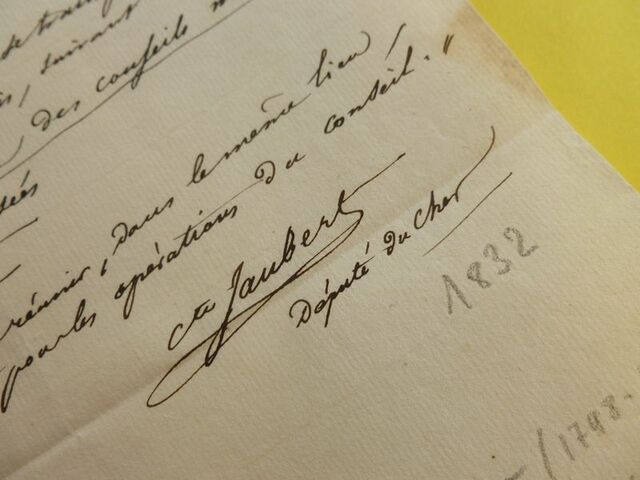 suivant
des conseils
réunir, dans le même lieu,
pour les opérations du conseil. "
Cte Jaubert
Député du Cher
1832
(1798-